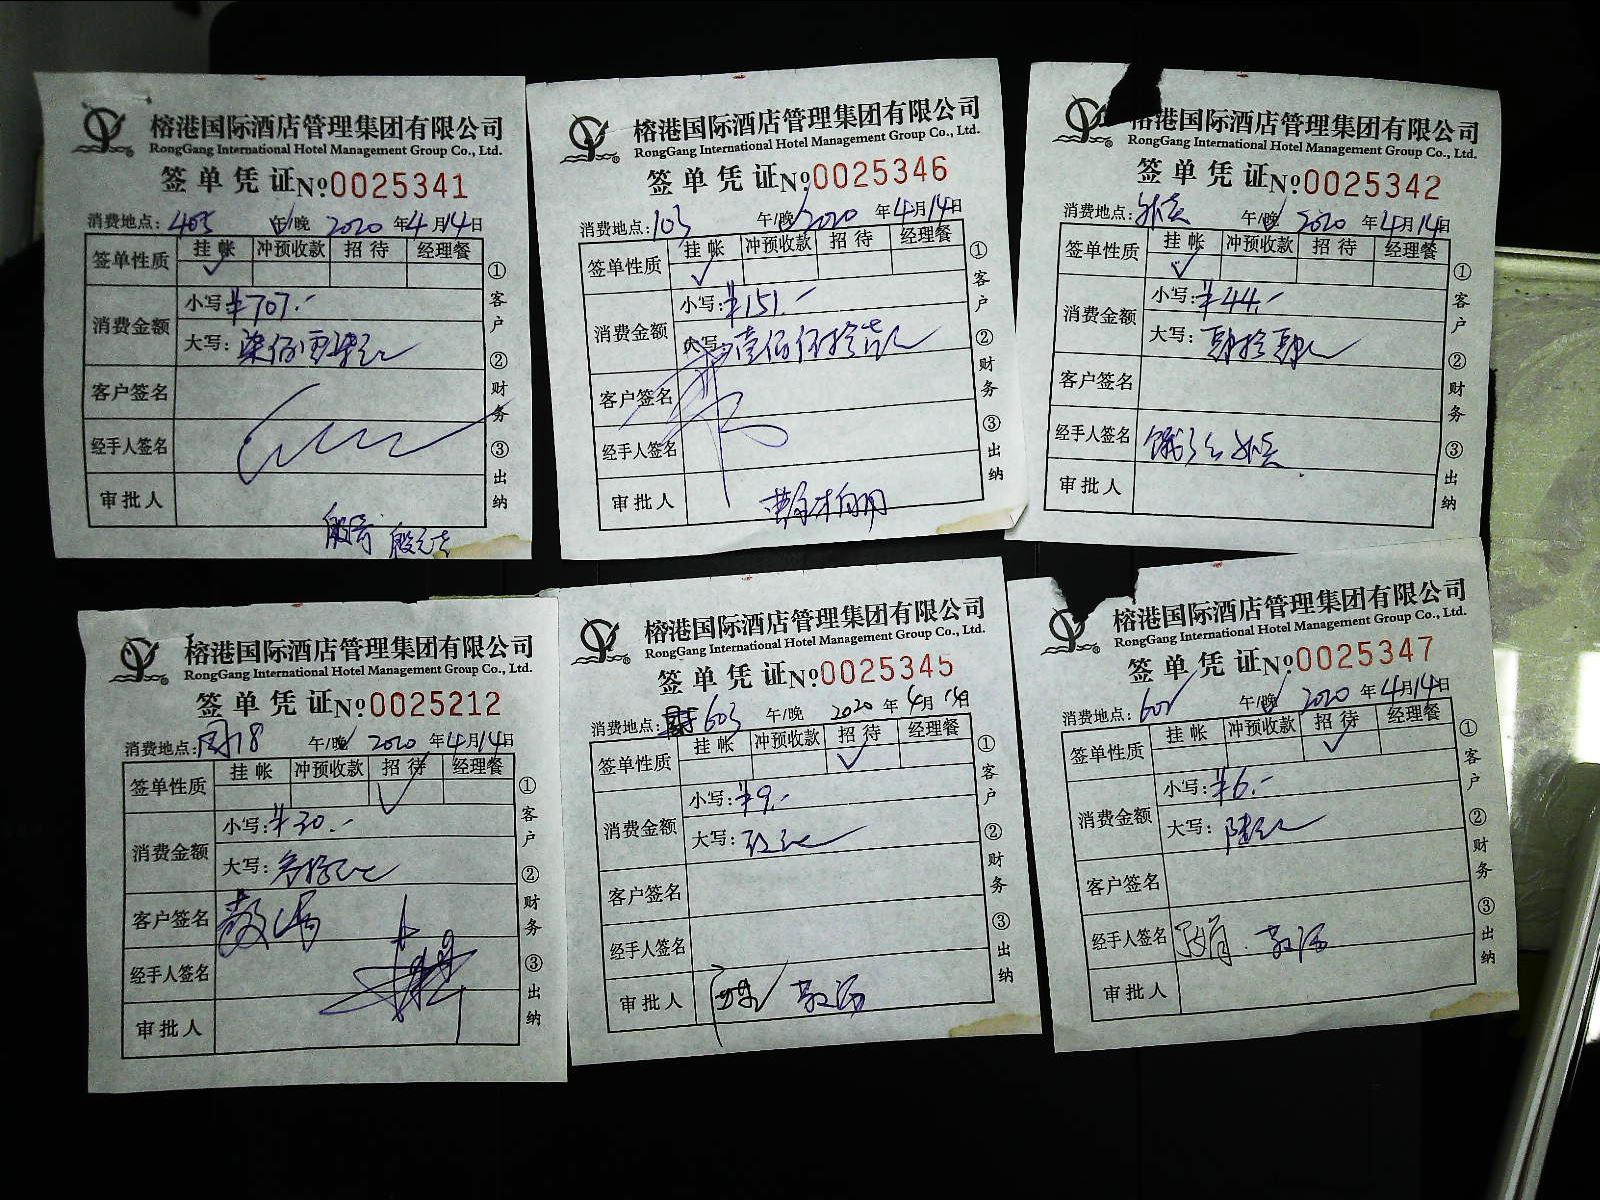 榕港国际酒店管理集团有限公司
RongGang International Hotel Management Group Co., Ltd.
签单凭证 №0025341
消费地点: 403 午/晚 2020年4月14日
签单性质 挂帐 冲预收款 招待 经理餐
✓
消费金额 小写: ¥707.-
大写: 柒佰零柒元
客户签名
经手人签名
审批人
①客户 ②财务 ③出纳
榕港国际酒店管理集团有限公司
RongGang International Hotel Management Group Co., Ltd.
签单凭证 №0025346
消费地点: 103 午/晚 2020年4月14日
签单性质 挂帐 冲预收款 招待 经理餐
✓
消费金额 小写: ¥151.-
大写: 壹佰伍拾壹元
客户签名
经手人签名
审批人
①客户 ②财务 ③出纳
榕港国际酒店管理集团有限公司
RongGang International Hotel Management Group Co., Ltd.
签单凭证 №0025342
消费地点: 午/晚 2020年4月14日
签单性质 挂帐 冲预收款 招待 经理餐
✓
消费金额 小写: ¥44.-
大写: 肆拾肆元
客户签名
经手人签名
审批人
①客户 ②财务 ③出纳
榕港国际酒店管理集团有限公司
RongGang International Hotel Management Group Co., Ltd.
签单凭证 №0025212
消费地点: 18 午/晚 2020年4月14日
签单性质 挂帐 冲预收款 招待 经理餐
✓
消费金额 小写: ¥30.-
大写: 叁拾元
客户签名
经手人签名
审批人
①客户 ②财务 ③出纳
榕港国际酒店管理集团有限公司
RongGang International Hotel Management Group Co., Ltd.
签单凭证 №0025345
消费地点: 603 午/晚 2020年4月14日
签单性质 挂帐 冲预收款 招待 经理餐
✓
消费金额 小写: ¥9.-
大写: 玖元
客户签名
经手人签名
审批人
①客户 ②财务 ③出纳
榕港国际酒店管理集团有限公司
RongGang International Hotel Management Group Co., Ltd.
签单凭证 №0025347
消费地点: 午/晚 2020年4月14日
签单性质 挂帐 冲预收款 招待 经理餐
✓
消费金额 小写: ¥6.-
大写: 陆元
客户签名
经手人签名
审批人
①客户 ②财务 ③出纳